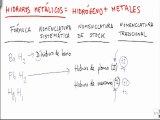 HIDRUROS METÁLICOS = HIDRÓGENO + METALES
FÓRMULA NOMENCLATURA SISTEMÁTICA NOMENCLATURA DE STOCK NOMENCLATURA TRADICIONAL
Ba H₂ Dihidruro de bario
Pb H₂ Hidruro de plomo
H₂ Hidruro de